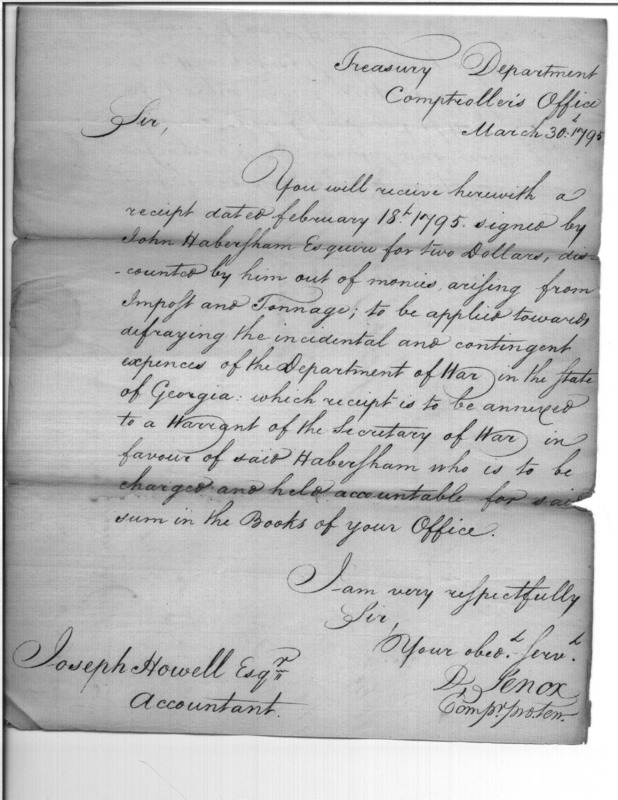 Treasury Department
Comptroller's Office
March 30.t 1795
Sir,
You will receive herewith a
receipt dated february 18.t 1795. signed by
John Habersham Esquire for two Dollars, dis-
-counted by him out of monies, arising from
Impost and Tonnage; to be applied towards
defraying the incidental and contingent
expences of the Department of War in the State
of Georgia: which receipt is to be annexed
to a Warrant of the Secretary of War in
favour of said Habersham who is to be
charged and held accountable for said
sum in the Books of your Office.
I am very respectfully
Sir,
Your obed.t Serv.t
D. Lenox
Comp.r protem.
Joseph Howell Esq.r
Accountant.